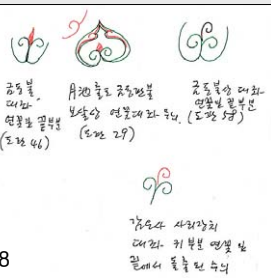 금동불
대좌
연꽃잎 끝부분
(도판 46)
月池 출토 금동판불
보살상 연꽃대좌 무늬,
(도판 29)
금동불상 대좌
연꽃잎 끝부분
(도판 58)
감은사 사리장치
대좌 귀부분 연꽃잎
끝에서 돌출된 무늬
8